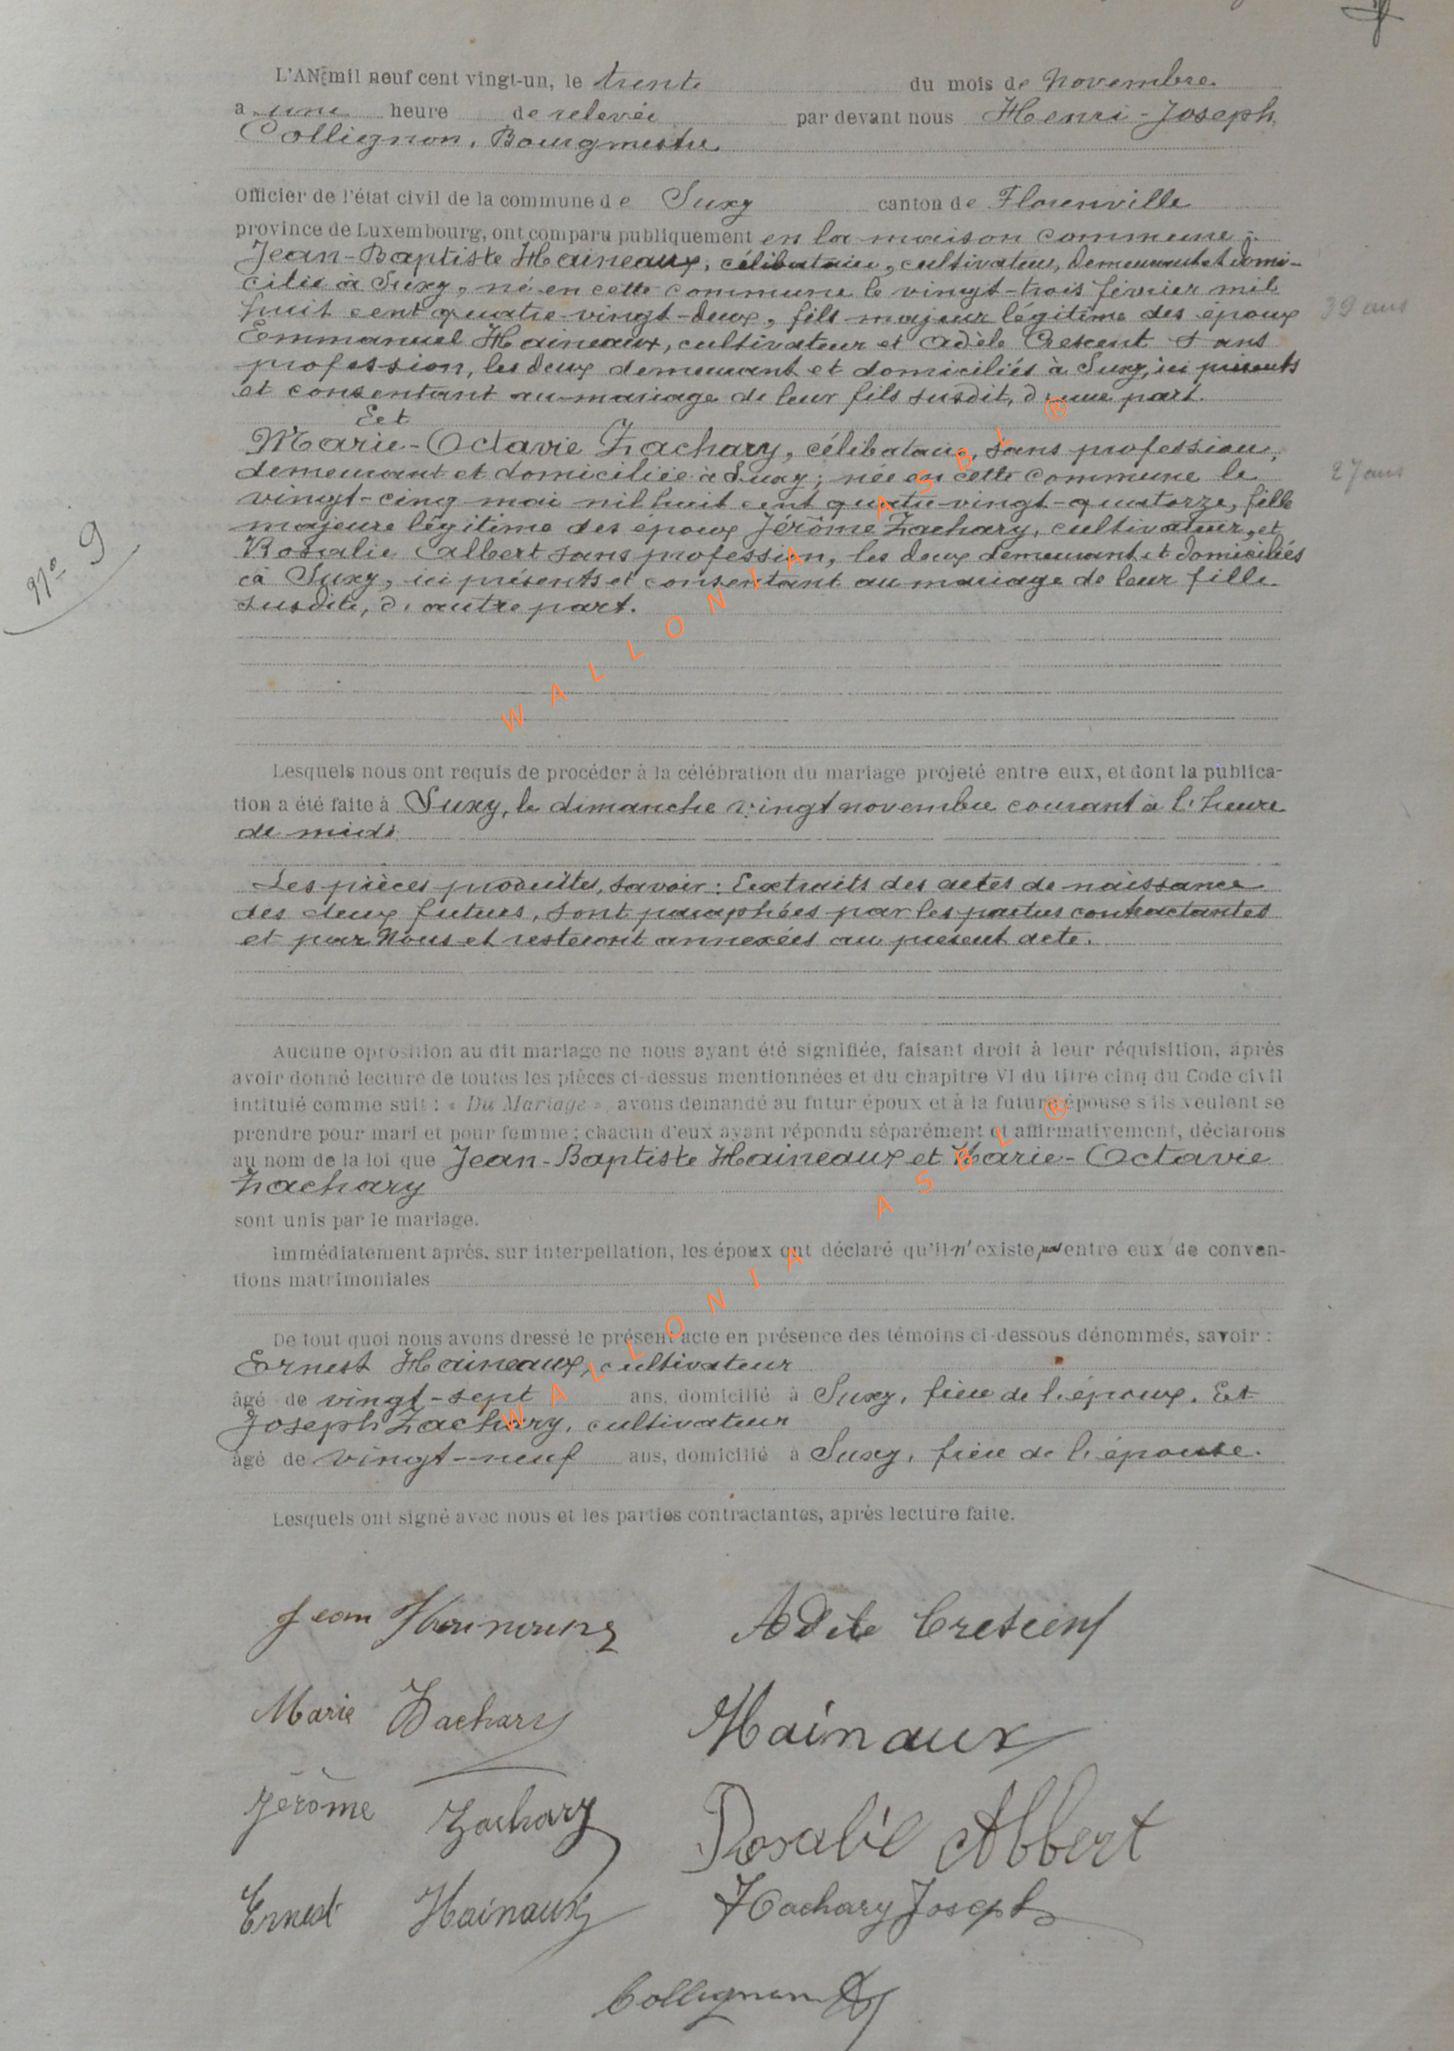 L'AN mil neuf cent vingt-un, le trente du mois de Novembre
a une heure de relevée par devant nous Henri-Joseph
Collignon, Bourgmestre
Officier de l'état civil de la commune de Suxy canton de Florenville
province de Luxembourg, ont comparu publiquement en la maison commune :
Jean-Baptiste Haineaux, célibataire, cultivateur, demeurant et domi-
cilié à Suxy, né en cette commune le vingt-trois février mil
huit cent quatre-vingt-deux, fils majeur légitime des époux
39 ans
Emmanuel Haineaux, cultivateur et Adèle Crescent sans
profession, les deux demeurant et domiciliés à Suxy, ici présents
et consentant au mariage de leur fils susdit, d'une part.
Eet
Marie-Octavie Zachary, célibataire, sans profession,
demeurant et domiciliée à Suxy ; née en cette commune le
27 ans
vingt-cinq mai mil huit cent quatre-vingt-quatorze, fille
majeure légitime des époux Jérôme Zachary, cultivateur, et
Rosalie Albert sans profession, les deux demeurant et domiciliés
à Suxy, ici présents et consentant au mariage de leur fille
susdite, d'autre part.
N° 9
Lesquels nous ont requis de procéder à la célébration du mariage projeté entre eux, et dont la publica-
tion a été faite à Suxy, le dimanche vingt novembre courant à l'heure
de midi
Les pièces produites, savoir : Extraits des actes de naissance
des deux futurs, sont paraphées par les parties contractantes
et par Nous et resteront annexées au présent acte.
Aucune opposition au dit mariage ne nous ayant été signifiée, faisant droit à leur réquisition, après
avoir donné lecture de toutes les pièces ci-dessus mentionnées et du chapitre VI du titre cinq du Code civil
intitulé comme suit : « Du Mariage », avons demandé au futur époux et à la future épouse s'ils veulent se
prendre pour mari et pour femme ; chacun d'eux ayant répondu séparément et affirmativement, déclarons
au nom de la loi que Jean-Baptiste Haineaux et Marie-Octavie
Zachary
sont unis par le mariage.
Immédiatement après, sur interpellation, les époux ont déclaré qu'il n'existe pas entre eux de conven-
tions matrimoniales
De tout quoi nous avons dressé le présent acte en présence des témoins ci-dessous dénommés, savoir :
Ernest Haineaux, cultivateur
âgé de vingt-sept ans, domicilié à Suxy, frère de l'époux. Et
Joseph Zachary, cultivateur
âgé de vingt-neuf ans, domicilié à Suxy, frère de l'épouse.
Lesquels ont signé avec nous et les parties contractantes, après lecture faite.
Jean Hainaux Adèle Crescent
Marie Zachary Hainaux
Jérôme Zachary Rosalie Albert
Ernest Hainaux Zachary Joseph
Collignon
WALLONIA ASBL ®
WALLONIA ASBL ®